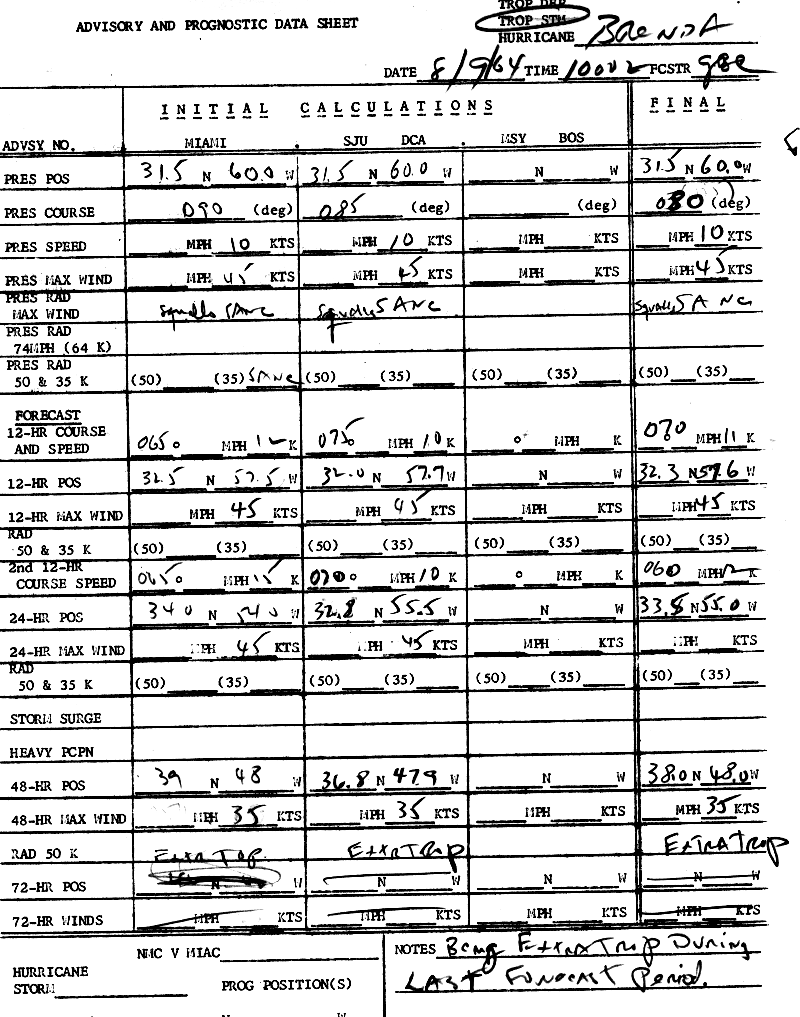 TROP DEP
ADVISORY AND PROGNOSTIC DATA SHEET TROP STM
HURRICANE BRENDA
DATE 8/9/64 TIME 1000Z FCSTR
INITIAL CALCULATIONS FINAL
ADVSY NO. MIAMI . SJU DCA . MSY BOS
PRES POS 31.5 N 60.0 W 31.5 N 60.0 W N W 31.5 N 60.0 W
PRES COURSE 090 (deg) 085 (deg) (deg) 080 (deg)
PRES SPEED MPH 10 KTS MPH 10 KTS MPH KTS MPH 10 KTS
PRES MAX WIND MPH 45 KTS MPH 45 KTS MPH KTS MPH 45 KTS
PRES RAD
MAX WIND squalls SANE squalls SANE squalls SANE
PRES RAD
74MPH (64 K)
PRES RAD
50 & 35 K (50) (35) SANE (50) (35) (50) (35) (50) (35)
FORECAST
12-HR COURSE
AND SPEED 065° MPH 12 K 075 MPH 10 K ° MPH K 070 MPH 11 K
12-HR POS 32.5 N 57.5 W 32.0 N 57.7 W N W 32.3 N 57.6 W
12-HR MAX WIND MPH 45 KTS MPH 45 KTS MPH KTS MPH 45 KTS
RAD
50 & 35 K (50) (35) (50) (35) (50) (35) (50) (35)
2nd 12-HR
COURSE SPEED 065° MPH 15 K 070° MPH 10 K ° MPH K 060 MPH 12 K
24-HR POS 34.0 N 54.0 W 32.8 N 55.5 W N W 33.5 N 55.0 W
24-HR MAX WIND MPH 45 KTS MPH 45 KTS MPH KTS MPH KTS
RAD
50 & 35 K (50) (35) (50) (35) (50) (35) (50) (35)
STORM SURGE
HEAVY PCPN
48-HR POS 39 N 48 W 36.8 N 47.9 W N W 38.0 N 48.0 W
48-HR MAX WIND MPH 35 KTS MPH 35 KTS MPH KTS MPH 35 KTS
RAD 50 K Extra Trop Extra Trop Extra Trop
72-HR POS N W N W N W N W
72-HR WINDS MPH KTS MPH KTS MPH KTS MPH KTS
NMC V MIAC NOTES Bcmg Extra Trop During
HURRICANE
STORM PROG POSITION(S) Last Forecast Period.
N W